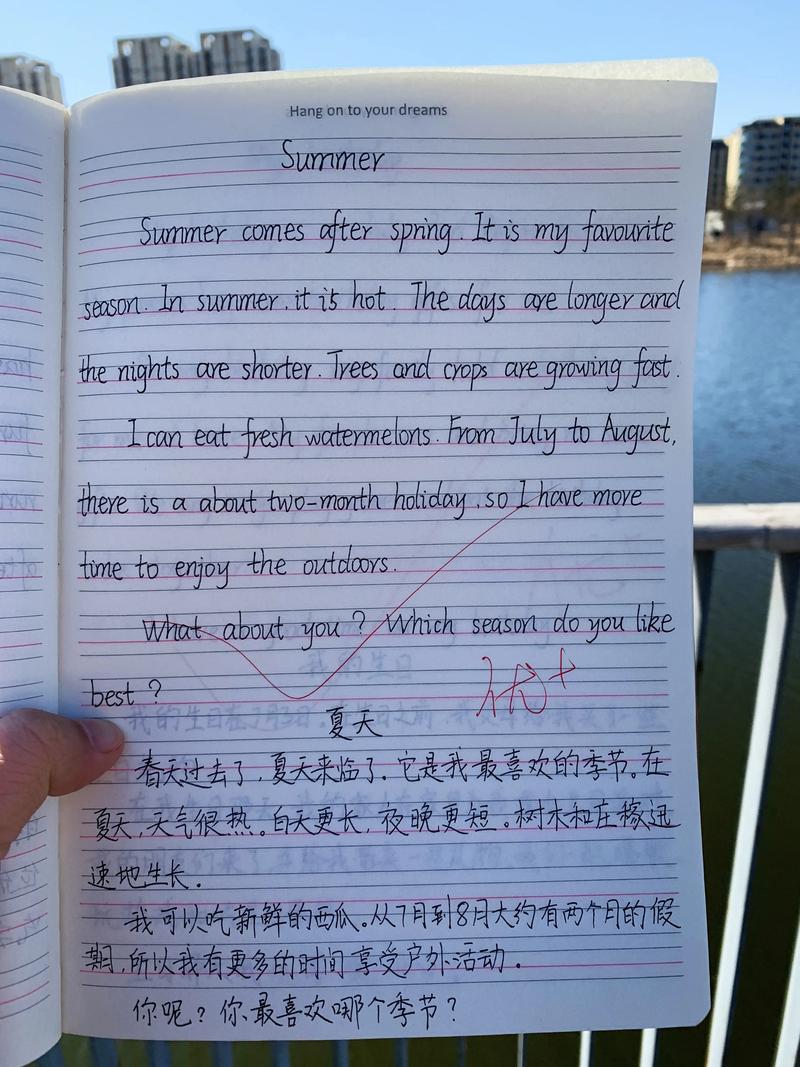 Hang on to your dreams
Summer
Summer comes after spring. It is my favourite
season. In summer, it is hot. The days are longer and
the nights are shorter. Trees and crops are growing fast.
I can eat fresh watermelons. From July to August,
there is a about two-month holiday, so I have more
time to enjoy the outdoors.
What about you? Which season do you like
best?
优+
夏天
春天过去了,夏天来临了。它是我最喜欢的季节。在
夏天,天气很热。白天更长,夜晚更短。树木和庄稼迅
速地生长。
我可以吃新鲜的西瓜。从7月到8月大约有两个月的假
期,所以我有更多的时间享受户外活动。
你呢?你最喜欢哪个季节?